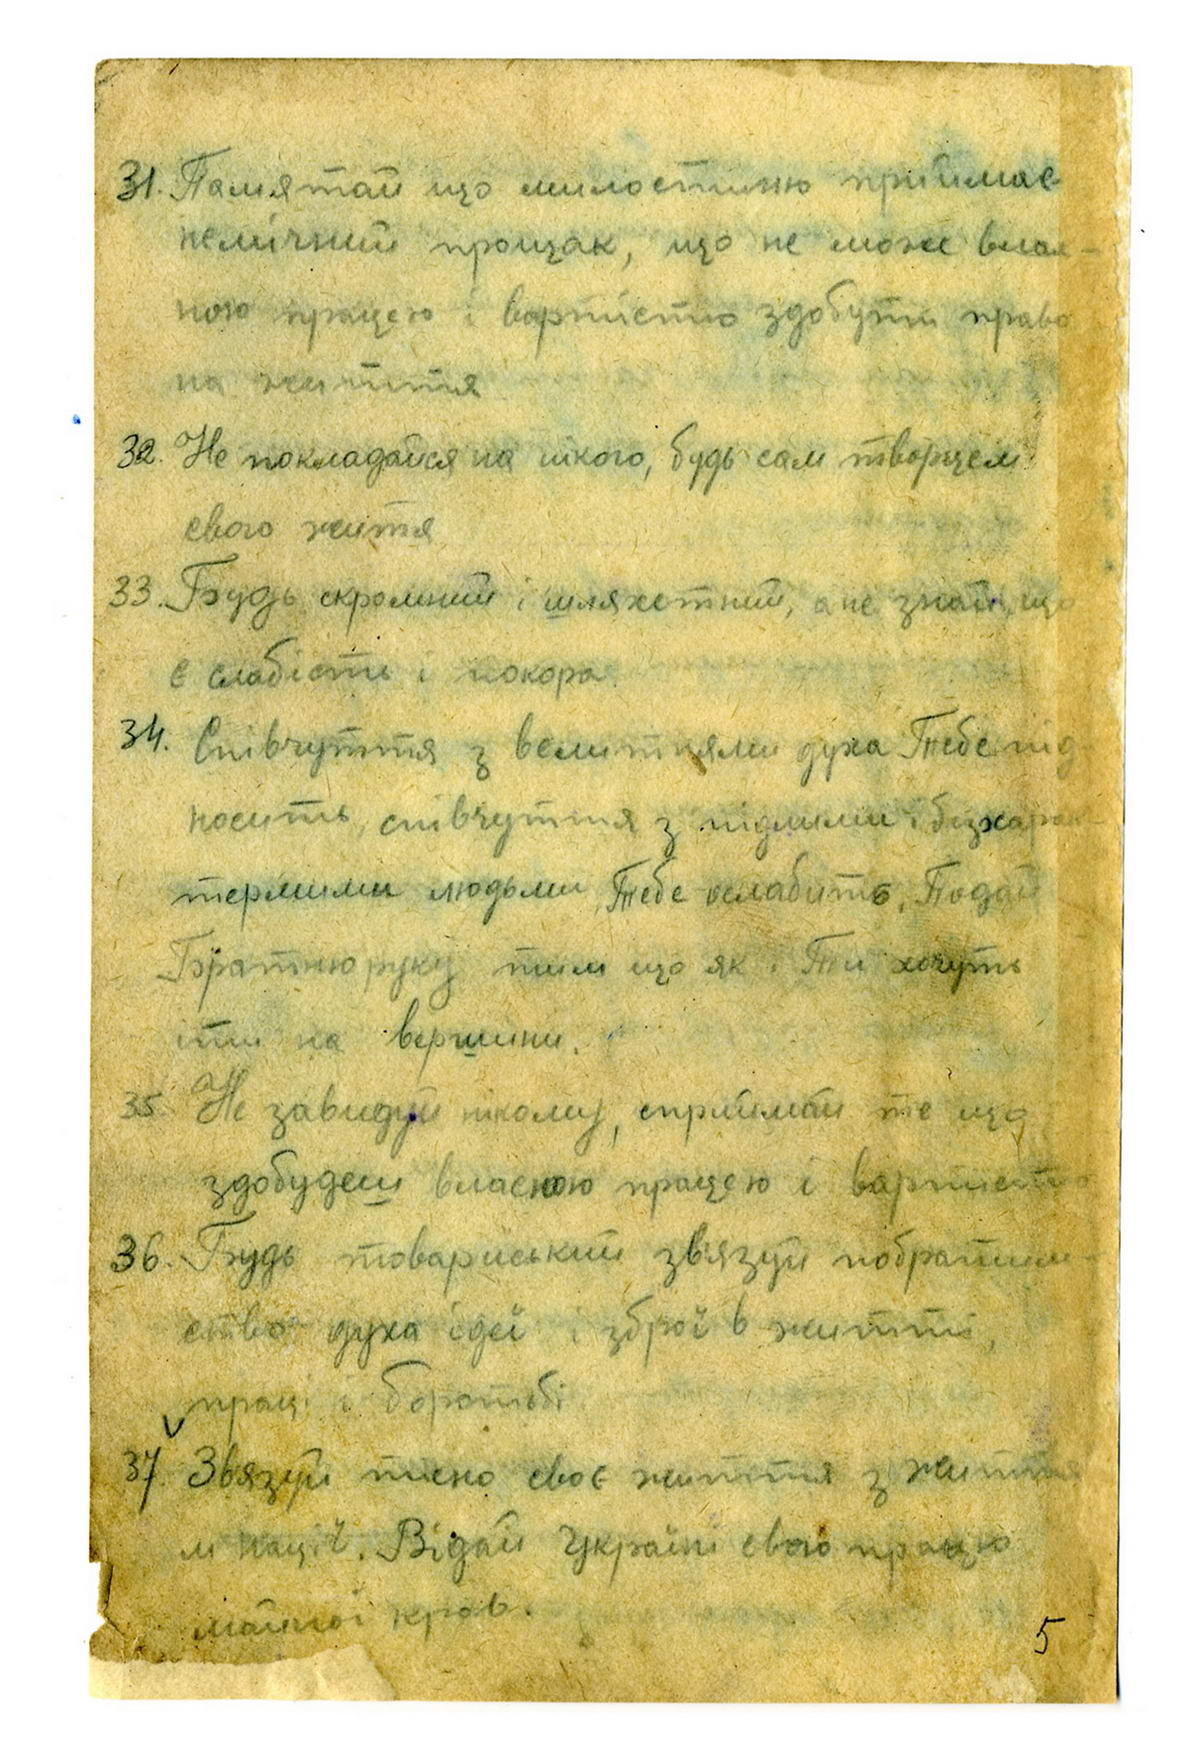 31. Памятай що милостиню приймає
немічний прощак, що не може влас-
ною працею і вартістю здобути право
на життя
32. Не покладайся на нікого, будь сам творцем
свого життя
33. Будь скромний і шляхетний, а не знай, що
є слабість і покора.
34. Співчуття з велитнями духа Тебе під-
носить, співчуття з підлими і безхарак-
терними людьми Тебе ослабить. Подай
Братню руку тим що як і Ти хочуть
іти на вершини.
35 Не завидуй нікому, сприймай те що
здобудеш власною працею і вартістю
36. Будь товариський звязуй побратим-
ство духа ідеї і зброї в житті,
праці і боротьбі
37. Звязуй тісно своє життя з життя
м нації. Відай Україні свою працю
майно і кров.
5